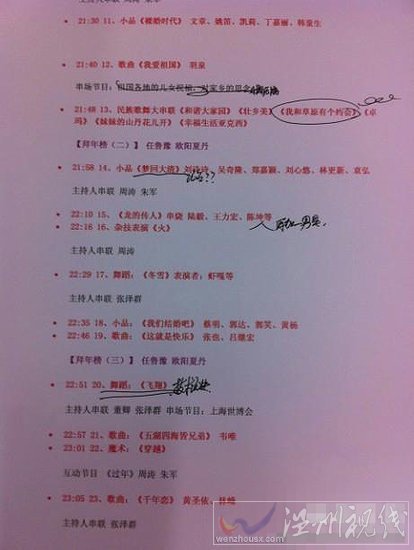 21:30 11、小品《裸婚时代》 文章、姚笛、凯莉、丁嘉丽、韩童生
21:40 12、歌曲《我爱祖国》 羽泉
串场节目：祖国各地的儿女祝福、对家乡的思念
21:48 13、民族歌舞大串联《和谐大家园》《壮乡美》《我和草原有个约会》《卓
玛》《妹妹的山丹花儿开》《幸福生活亚克西》
【拜年榜（二）】 任鲁豫 欧阳夏丹
21:58 14、小品《梦回大清》刘诗诗、吴奇隆、郑嘉颖、刘心悠、林更新、袁弘
主持人串联 周涛 朱军
22:10 15、《龙的传人》串烧 陆毅、王力宏、陈坤等
22:16 16、杂技表演《火》
主持人串联 周涛
22:29 17、舞蹈：《冬雪》表演者：虾嘎等
主持人串联 张泽群
22:35 18、小品：《我们结婚吧》 蔡明、郭达、郭笑、黄杨
22:46 19、歌曲：《这就是快乐》 张也、吕继宏
【拜年榜（三）】 任鲁豫 欧阳夏丹
22:51 20、舞蹈：《飞翔》
主持人串联 董卿 张泽群 串场节目：上海世博会
22:57 21、歌曲：《五湖四海皆兄弟》 韦唯
23:01 22、魔术：《穿越》
互动节目 《过年》周涛 朱军
23:05 23、歌曲：《千年恋》 黄圣依、
主持人串联 张泽群
视线
www.wenzhousx.com